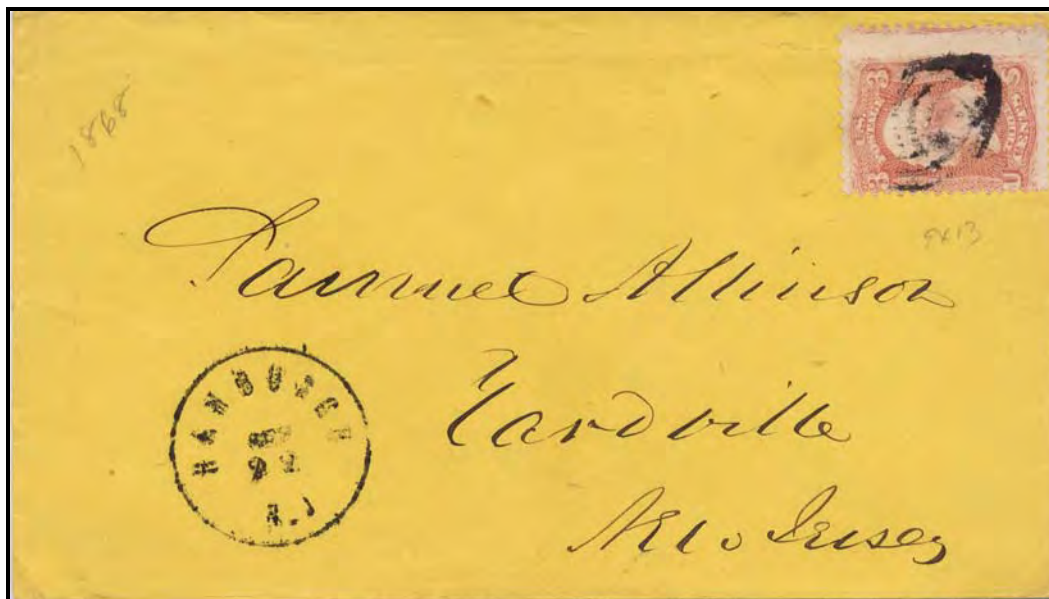 1868
9x13
Samuel Allinson
Yardville
New Jersey
HAMBURGH
22
N.J
3 3
U